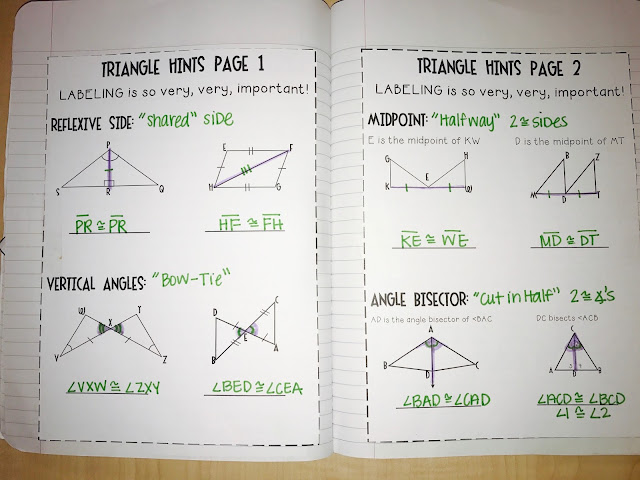 TRIANGLE HINTS PAGE 1
LABELING is so very, very, important!
REFLEXIVE SIDE: "shared" side
P
S R Q
E F
H G
PR ≅ PR
HF ≅ FH
VERTICAL ANGLES: "BOW-TIE"
W Y
X
V Z
D C
E
B A
∠VXW ≅ ∠ZXY
∠BED ≅ ∠CEA
TRIANGLE HINTS PAGE 2
LABELING is so very, very, important!
MIDPOINT: "Halfway" 2 ≅ sides
E is the midpoint of KW
D is the midpoint of MT
G H
K E W
B Z
M D T
KE ≅ WE
MD ≅ DT
ANGLE BISECTOR: "Cut in Half" 2 ≅ ∡'s
AD is the angle bisector of <BAC
DC bisects <ACB
A
B D C
C
A D B
∠BAD ≅ ∠CAD
∠ACD ≅ ∠BCD
∠1 ≅ ∠2